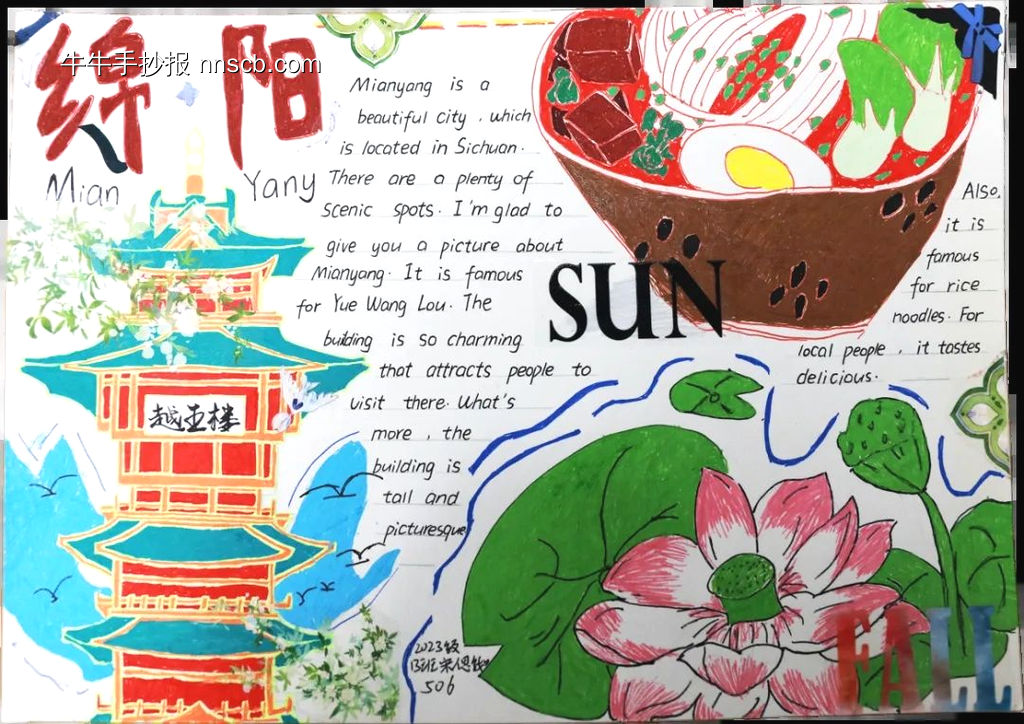 绵阳
牛牛手抄报 nnscb.com
Mian Yany
Mianyang is a
beautiful city , which
is located in Sichuan.
There are a plenty of
scenic spots. I'm glad to
give you a picture about
Mianyang. It is famous
for Yue Wang Lou. The
building is so charming
that attracts people to
visit there. What's
more , the
building is
tall and
picturesque
越王楼
SUN
Also.
it is
famous
for rice
noodles. For
local people , it tastes
delicious.
2023级
506
FALL